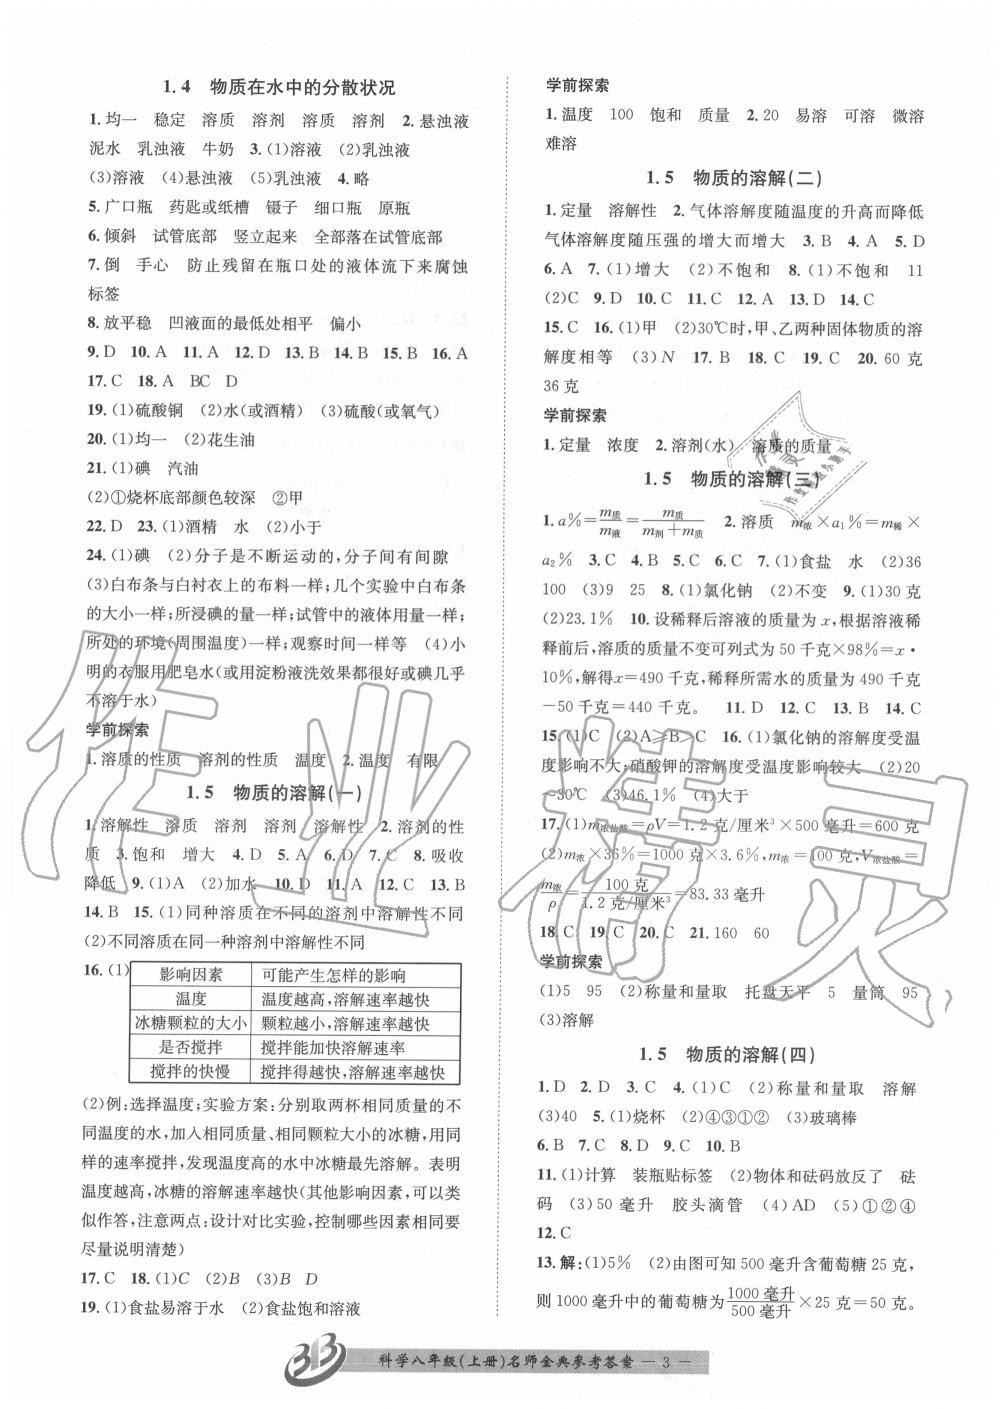 1.4 物质在水中的分散状况
1.均一 稳定 溶质 溶剂 溶质 溶剂 2.悬浊液
泥水 乳浊液 牛奶 3.(1)溶液 (2)乳浊液
(3)溶液 (4)悬浊液 (5)乳浊液 4.略
5.广口瓶 药匙或纸槽 镊子 细口瓶 原瓶
6.倾斜 试管底部 竖立起来 全部落在试管底部
7.倒 手心 防止残留在瓶口处的液体流下来腐蚀
标签
8.放平稳 凹液面的最低处相平 偏小
9.D 10.A 11.A 12.D 13.B 14.B 15.B 16.A
17.C 18.A BC D
19.(1)硫酸铜 (2)水(或酒精) (3)硫酸(或氧气)
20.(1)均一 (2)花生油
21.(1)碘 汽油
(2)①烧杯底部颜色较深 ②甲
22.D 23.(1)酒精 水 (2)小于
24.(1)碘 (2)分子是不断运动的,分子间有间隙
(3)白布条与白衬衣上的布料一样;几个实验中白布条
的大小一样;所浸碘的量一样;试管中的液体用量一样;
所处的环境(周围温度)一样;观察时间一样等 (4)小
明的衣服用肥皂水(或用淀粉液洗效果都很好或碘几乎
不溶于水)
学前探索
1.溶质的性质 溶剂的性质 温度 2.温度 有限
1.5 物质的溶解(一)
1.溶解性 溶质 溶剂 溶剂 溶解性 2.溶剂的性
质 3.饱和 增大 4.D 5.A 6.D 7.C 8.吸收
降低 9.(1)A (2)加水 10.D 11.D 12.C 13.B
14.B 15.(1)同种溶质在不同的溶剂中溶解性不同
(2)不同溶质在同一种溶剂中溶解性不同
16.(1) 影响因素 可能产生怎样的影响
温度 温度越高,溶解速率越快
冰糖颗粒的大小 颗粒越小,溶解速率越快
是否搅拌 搅拌能加快溶解速率
搅拌的快慢 搅拌得越快,溶解速率越快
(2)例:选择温度;实验方案:分别取两杯相同质量的不
同温度的水,加入相同质量、相同颗粒大小的冰糖,用同
样的速率搅拌,发现温度高的水中冰糖最先溶解。表明
温度越高,冰糖的溶解速率越快(其他影响因素可以类
似作答,注意两点:设计对比实验,控制哪些因素相同要
尽量说明清楚)
17.C 18.(1)C (2)B (3)B D
19.(1)食盐易溶于水 (2)食盐饱和溶液
学前探索
1.温度 100 饱和 质量 2.20 易溶 可溶 微溶
难溶
1.5 物质的溶解(二)
1.定量 溶解性 2.气体溶解度随温度的升高而降低
气体溶解度随压强的增大而增大 3.B 4.A 5.D
6.A 7.(1)增大 (2)不饱和 8.(1)不饱和 11
(2)C 9.D 10.C 11.C 12.D 13.D 14.C
15.C 16.(1)甲 (2)30℃时,甲、乙两种固体物质的溶
解度相等 (3)N 17.B 18.C 19.C 20.60 克
36 克
学前探索
1.定量 浓度 2.溶剂(水) 溶质的质量
1.5 物质的溶解(三)
1.a%=m质/m液=m质/(m剂+m质) 2.溶质 m浓×a₁%=m稀×
a₂% 3.C 4.B 5.B 6.C 7.(1)食盐 水 (2)36
100 (3)9 25 8.(1)氯化钠 (2)不变 9.(1)30克
(2)23.1% 10.设稀释后溶液的质量为x,根据溶液稀
释前后,溶质的质量不变可列式为 50 千克×98%=x·
10%,解得x=490 千克,稀释所需水的质量为 490 千克
-50千克=440 千克。 11.D 12.D 13.B 14.C
15.(1)C (2)A>B>C 16.(1)氯化钠的溶解度受温
度影响不大;硝酸钾的溶解度受温度影响较大 (2)20
~30℃ (3)46.1% (4)大于
17.(1)m浓盐酸=ρV=1.2 克/厘米³×500 毫升=600 克
(2)m浓×36%=1000 克×3.6%,m浓=100 克,V浓盐酸=
m浓/ρ=100 克/1.2 克/厘米³=83.33 毫升
18.C 19.C 20.C 21.160 60
学前探索
(1)5 95 (2)称量和量取 托盘天平 5 量筒 95
(3)溶解
1.5 物质的溶解(四)
1.D 2.D 3.C 4.(1)C (2)称量和量取 溶解
(3)40 5.(1)烧杯 (2)④③①② (3)玻璃棒
6.B 7.C 8.D 9.C 10.B
11.(1)计算 装瓶贴标签 (2)物体和砝码放反了 砝
码 (3)50 毫升 胶头滴管 (4)AD (5)①②④
12.C
13.解:(1)5% (2)由图可知 500 毫升含葡萄糖 25 克,
则 1000 毫升中的葡萄糖为1000 毫升/500 毫升×25 克=50 克。
科学八年级(上册)名师金典参考答案 — 3 —
作业精灵